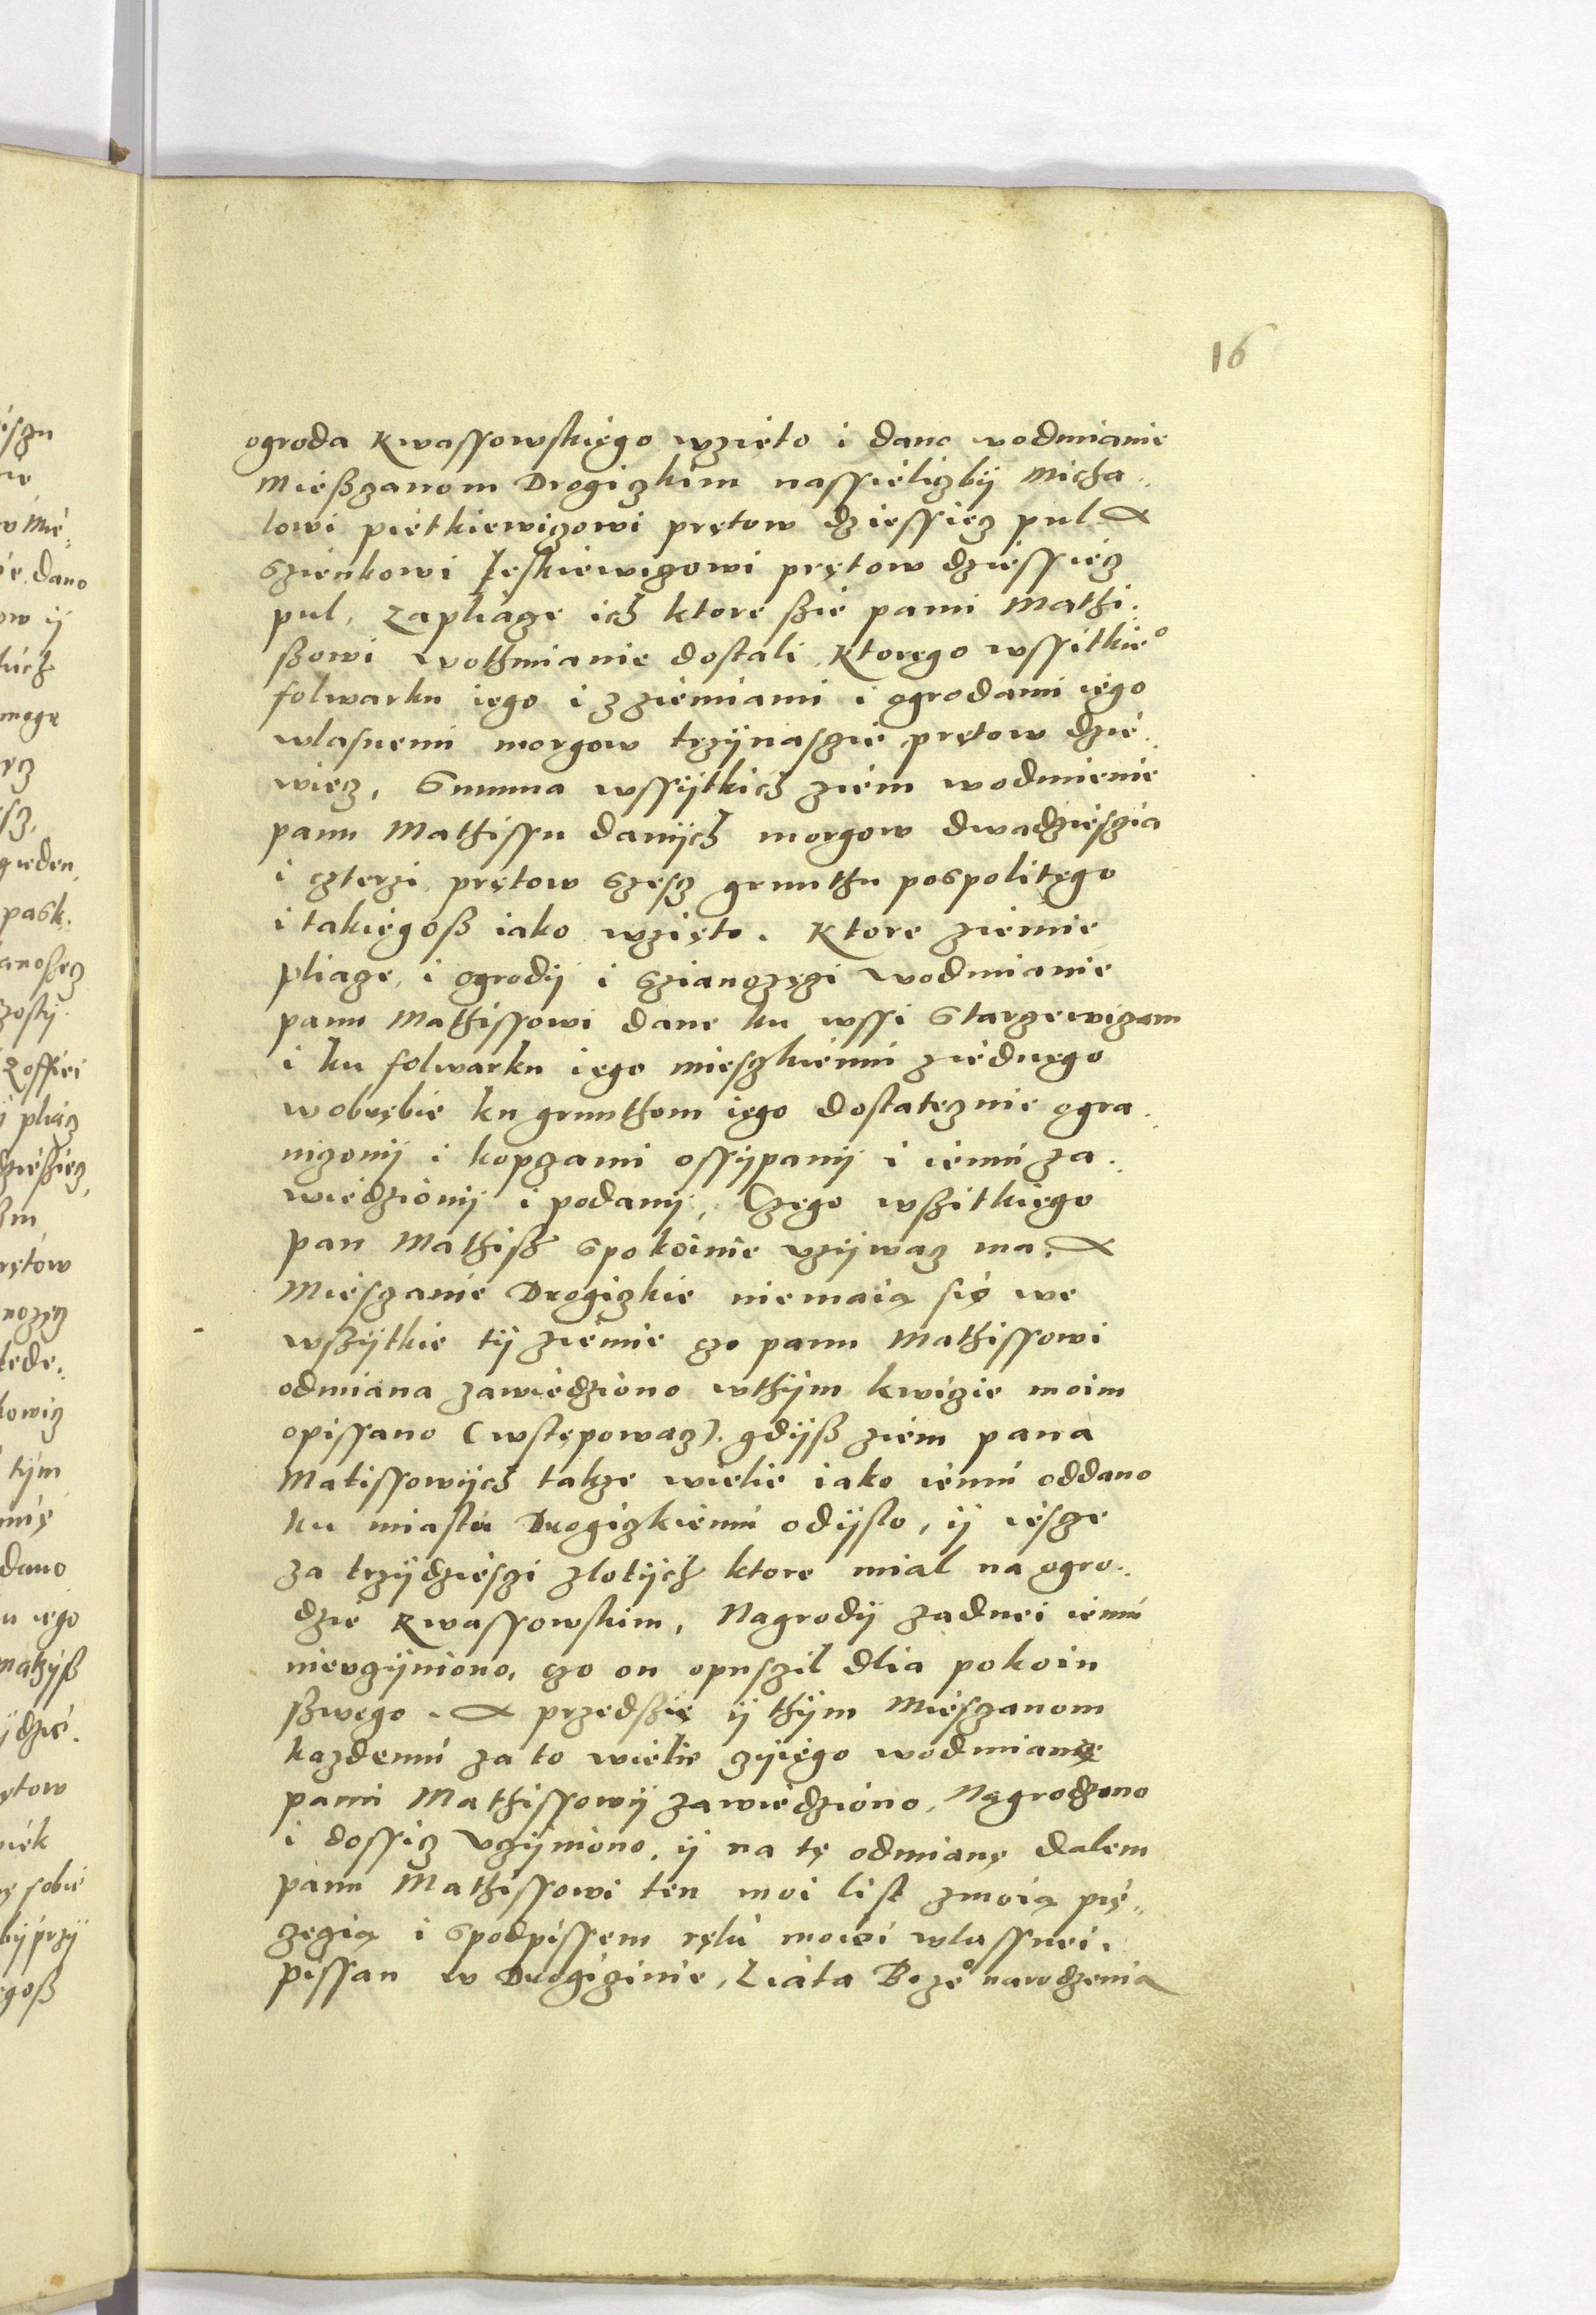 16
ogroda Kwassowskiego wzięto i dano wodmianie
Mießczanom Drogiczkim nassieliczbÿ Micha..
lowi pietkiewiczowi prętow dziessiecz pul. A
Szienkowi Leskiewiczowi prętow dziessiecz
pul, zapliacze ich ktore ßie pami Mathi:
ßowi wothmianie dostali, Ktorego wssitkie°
folwarku iego i zziemiami i ogrodami iego
wlasnemi morgow trzÿnaszie prętow dzie..
wiecz, Summa wssÿtkich ziem wodmienie
panu Mathissu danÿch morgow dwadziesczia
i czterzi prętow szescz grunthu pospolitego
i takiegoß iako wzięto. Ktore ziemie
pliacze, i ogrodÿ i szianozęczi wodmianie
panu Mathissowi dane ku wssi Starczewiczom
i ku folwarku iego mieszkiemu ziednego
wobrębie ku grunthom iego dostatecznie ogra..
niczonÿ i kopczami ossÿpanÿ i iemu za..
wiedzionÿ i podanÿ, Czego wßitkiego
pan Mathiß spokoinie vzÿwacz ma. A
Miesczanie Drogiczkie niemaią się we
wszÿtkie tÿ ziemie czo panu Mathissowi
odmiana zawiedziono wthÿm kwiczie moim
opissano (wstępowacz). gdÿß ziem pana
Matissowÿch takze wielie iako iemu oddano
ku miastu Drogiczkiemu odÿslo, ÿ iescze
za trzÿdziesczi zlotÿch ktore mial na ogro..
dzie Kwassowskim, Nagrodÿ zadnei iemu
nieuczÿniono, czo on opusczil dlia pokoiu
ßwego. A przedßię ÿ thÿm Miesczanom
kazdemu za to wielie czÿiego wodmianę
panu Mathissowÿ zawiedziono, Nagrodzono
i dossicz vczÿniono, ÿ na tę odmianę dalem
panu Mathissowi ten moi list zmoią pie..
częczią i spodpissem ręki moiei wlassnei.
pissan w Drogiczinie, Liata Boze° narodzenia